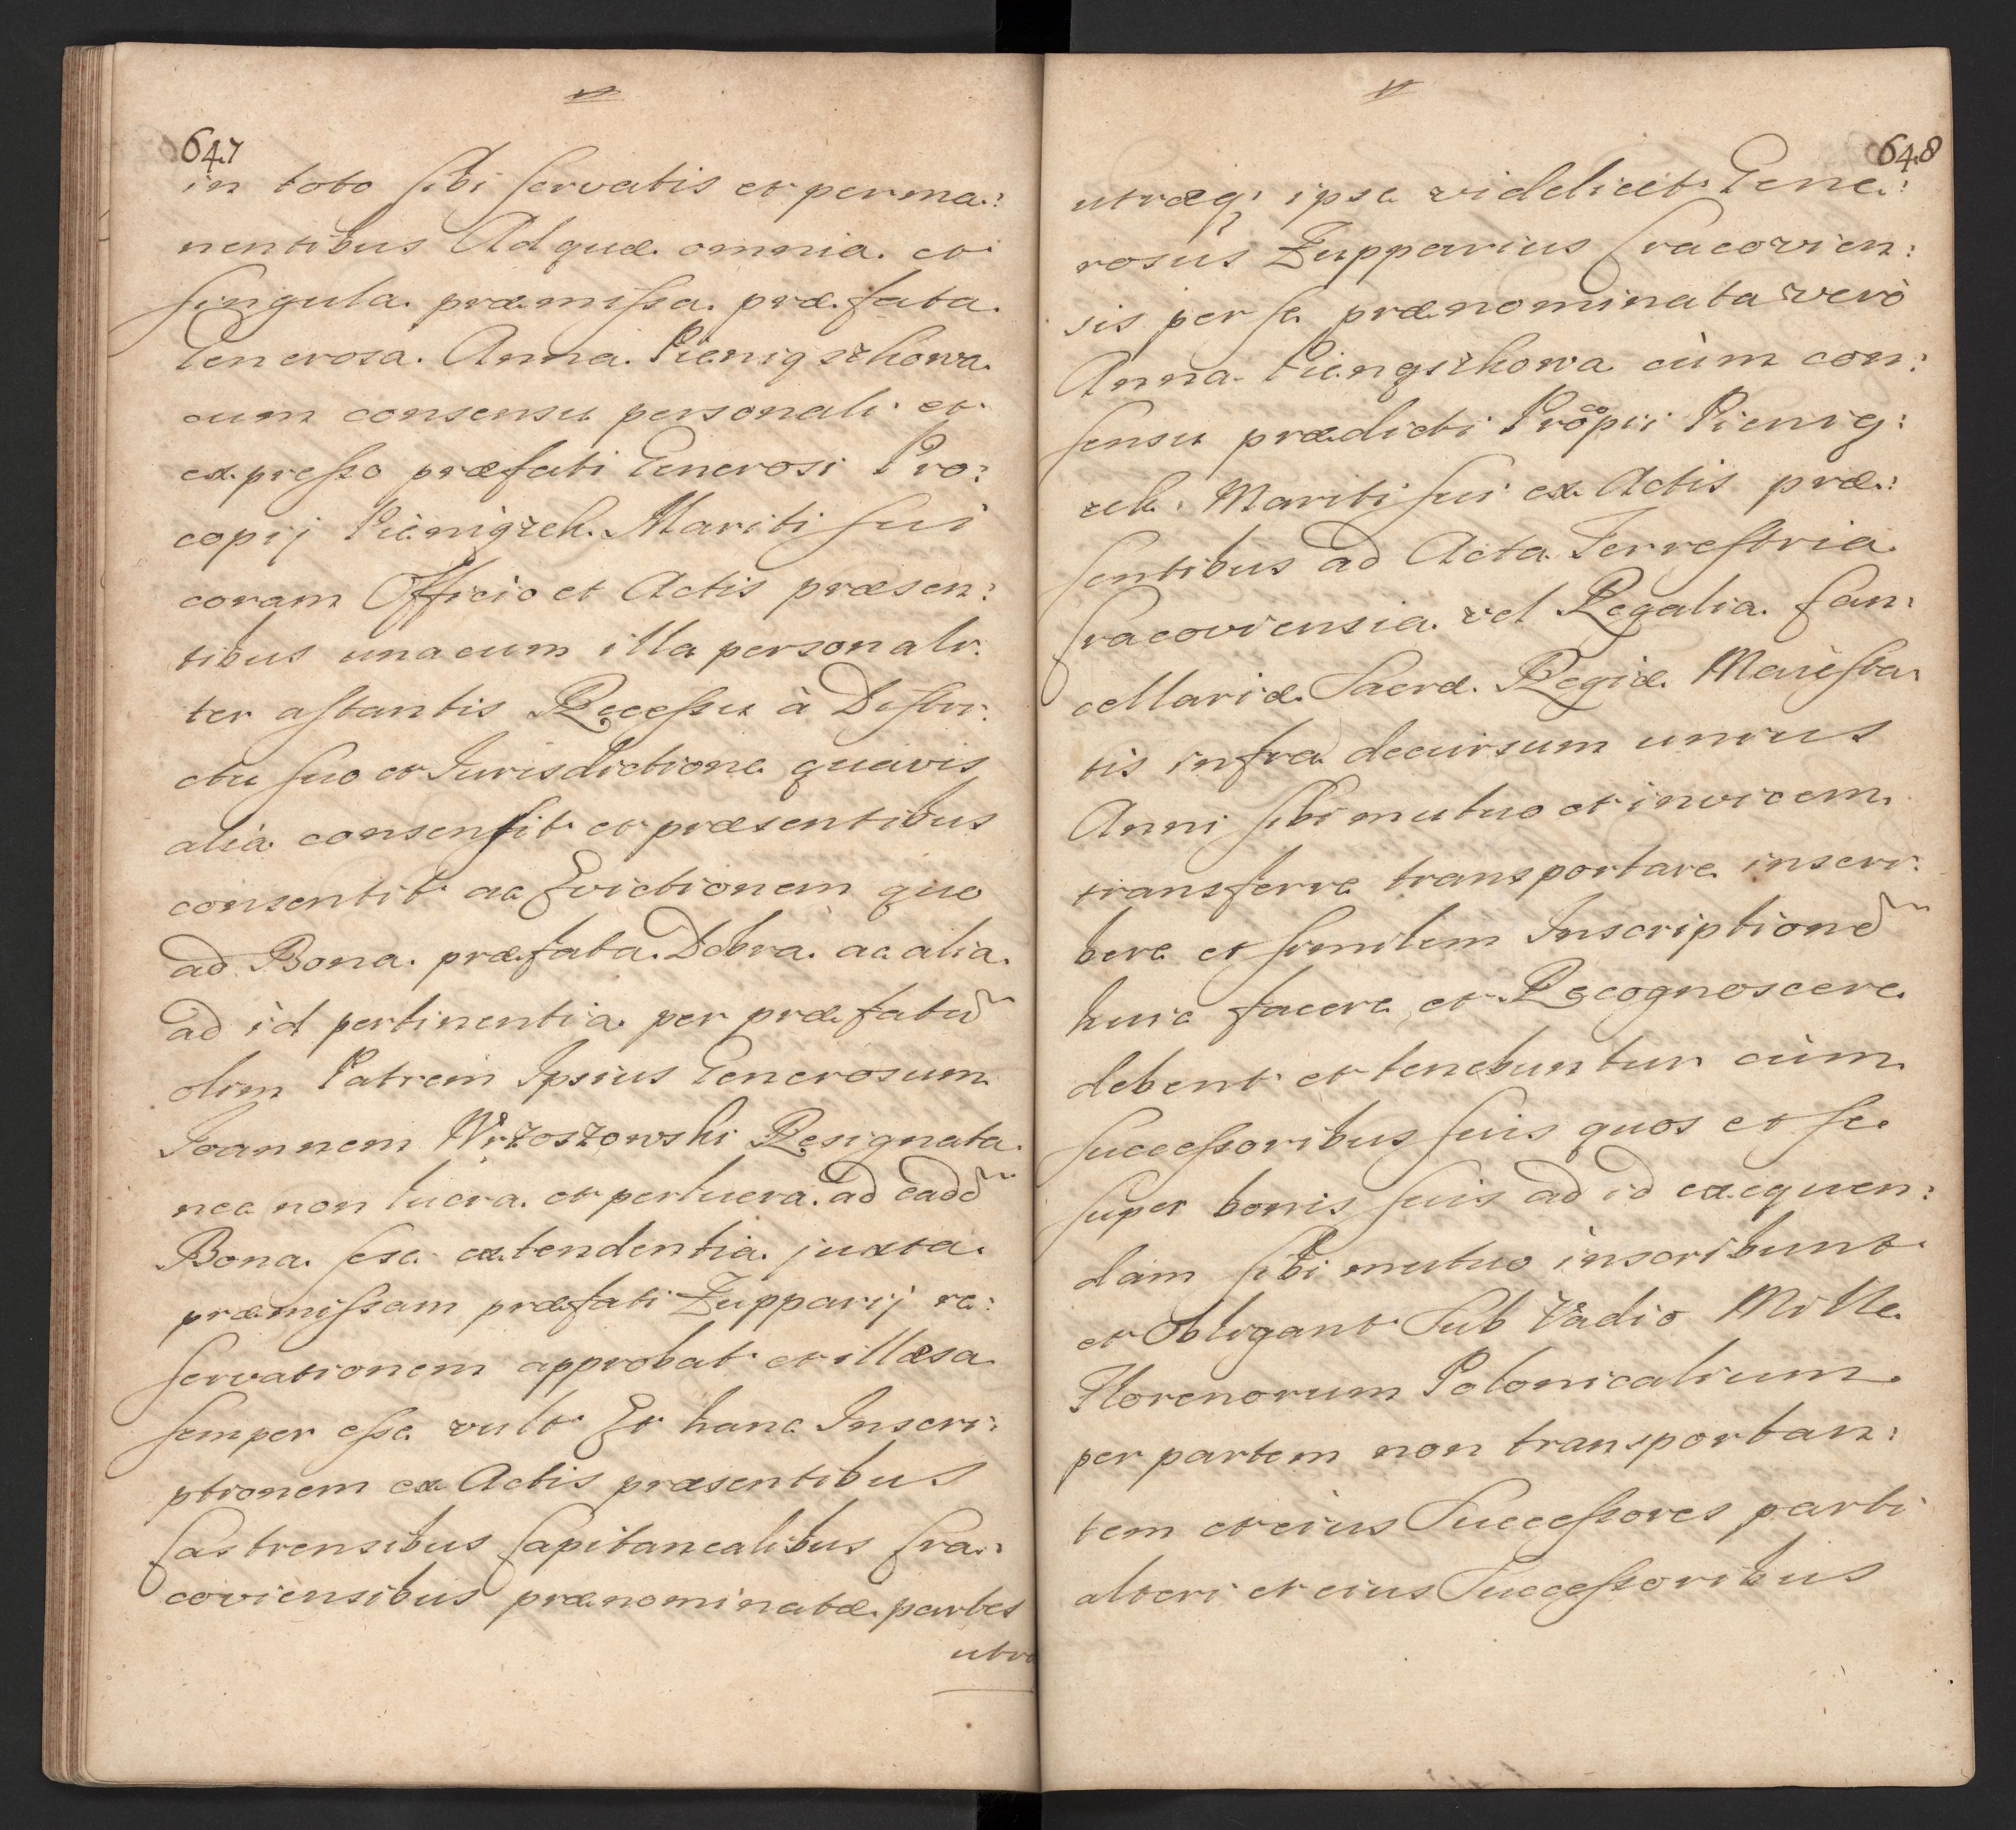 647
in toto sibi servatis et perma:
nentibus Ad quæ omnia et
singula præmissa præfata
Generosa Anna Pieniążkowa
cum consensu personali et
expresso præfati Generosi Pro:
copij Pieniązek Mariti sui
coram Officio et Actis præsen:
tibus unacum illa personali:
ter astantis Recessu à Distri:
ctu suo et Jurisdictione quavis
alia consensit et præsentibus
consentit ac Evictionem quo
ad Bona præfata Dobra ac alia
ad id pertinentia per præfatũ
olim Patrem Ipsius Generosum
Joannem Wrzoszowski Resignata
nec non lucra et perlucra ad eadẽ
Bona sese extendentia juxta
præmissam præfati Zupparij re:
servationem approbat et illæsa
semper esse vult Et hanc Inscri:
ptionem ex Actis præsentibus
Castrensibus Capitanealibus Cra:
coviensibus prænominatæ partes
utræ
648
utræq; ipse videlicet Gene:
rosus Zupparius Cracovien:
sis per se prænominata verò
Anna Pieniąszkowa cùm con:
sensu prædicti Procopii Pienią:
zek Mariti sui ex Actis præ:
sentibus ad Acta Terrestria
Cracoviensia vel Regalia Can:
cellariæ Sacræ Regiæ Maiesta:
tis infra decursum unius
Anni sibi mutuo et invicem
transferre transportare inscri:
bere et similem Inscriptionẽ
huic facere et Recognoscere
debent et tenebuntur cùm
Successoribus suis quos et se
super bonis suis ad id exequen:
dam sibi mutuo inscribunt
et obligant Sub Vadio Mille
Florenorum Polonicalium
per partem non transportan:
tem et eius Successores parti
alteri et eius Successoribus